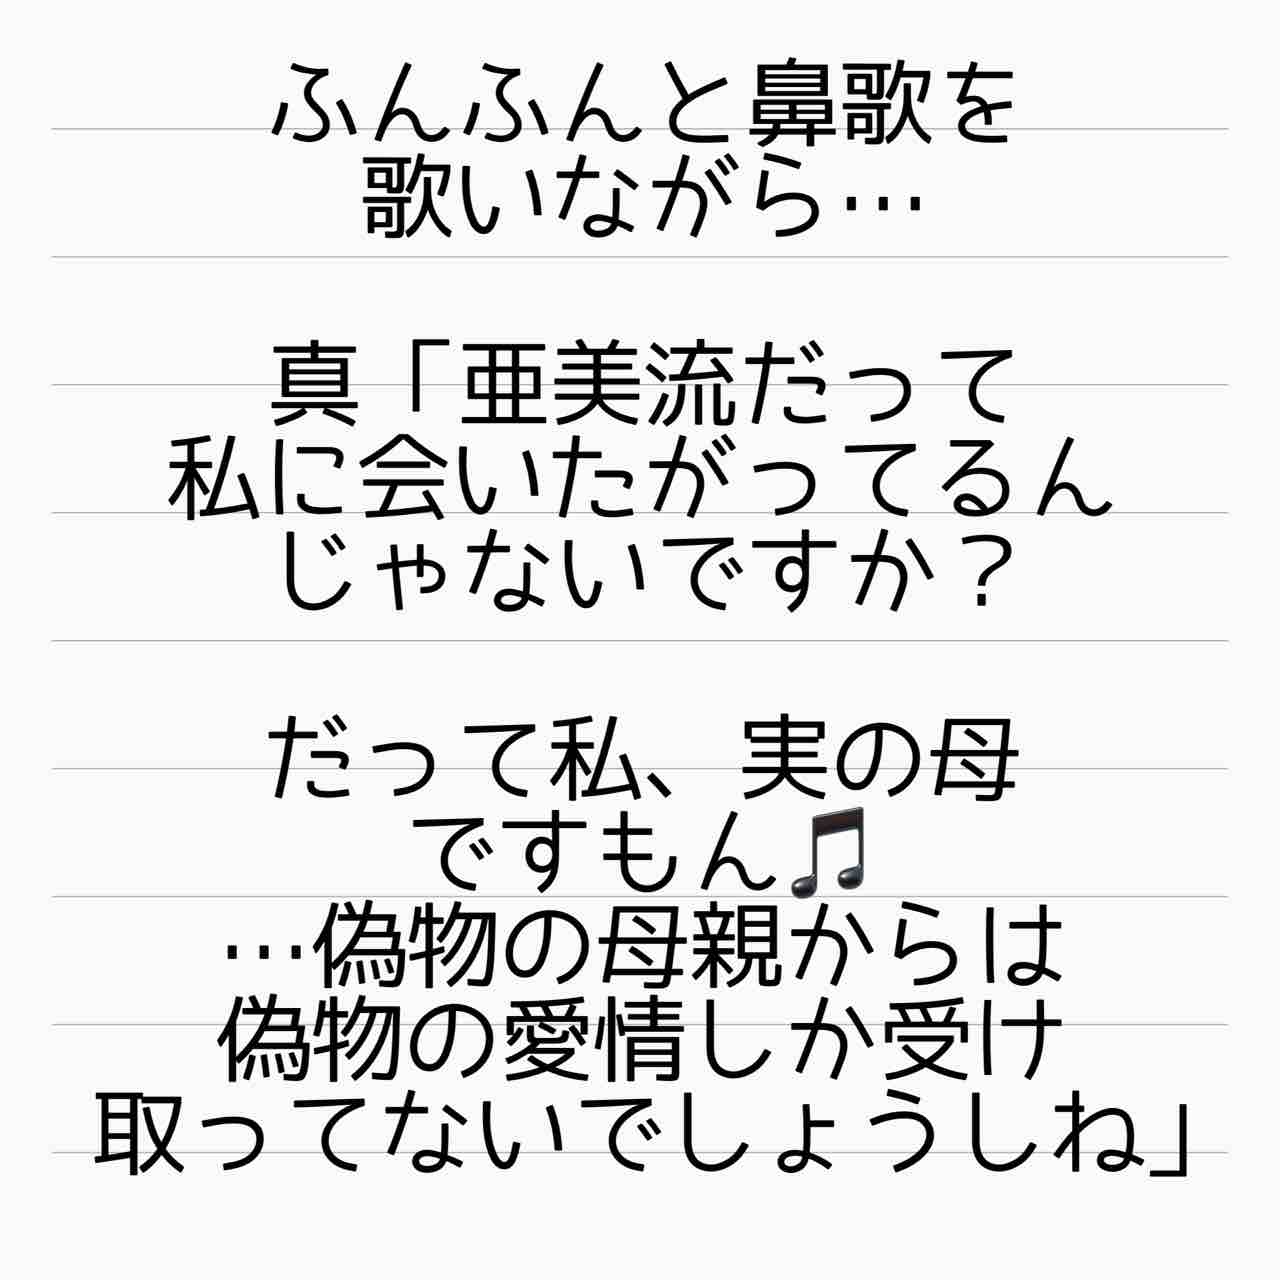 ふんふんと鼻歌を
歌いながら…
真「亜美流だって
私に会いたがってるん
じゃないですか？
だって私、実の母
ですもん🎵
…偽物の母親からは
偽物の愛情しか受け
取ってないでしょうしね」